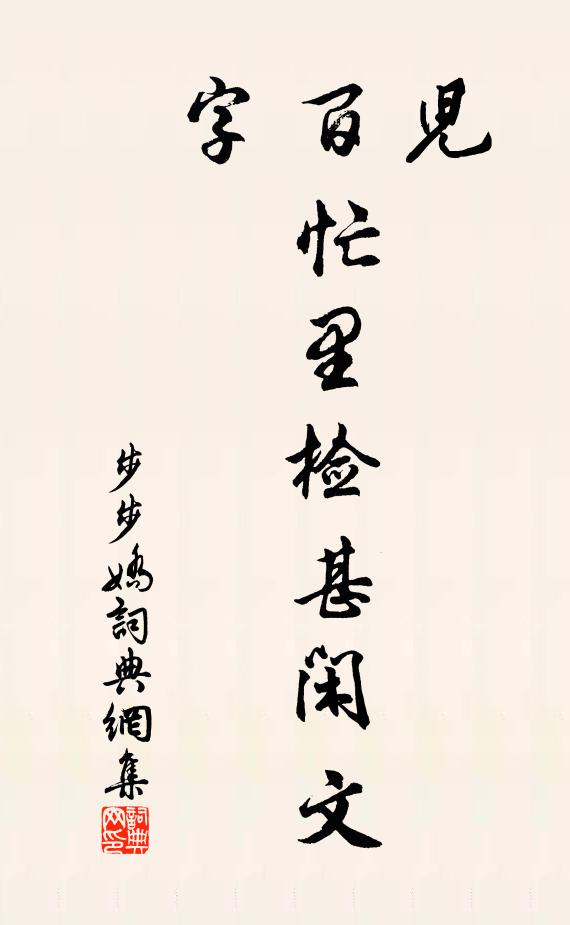 兒
百忙里检甚闲文
字
步步嬌詞典網集
詞典
网印